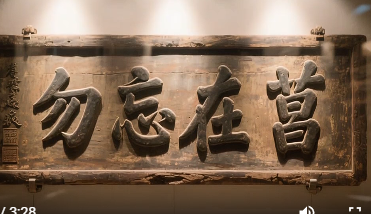 勿忘在莒
/ 3:28